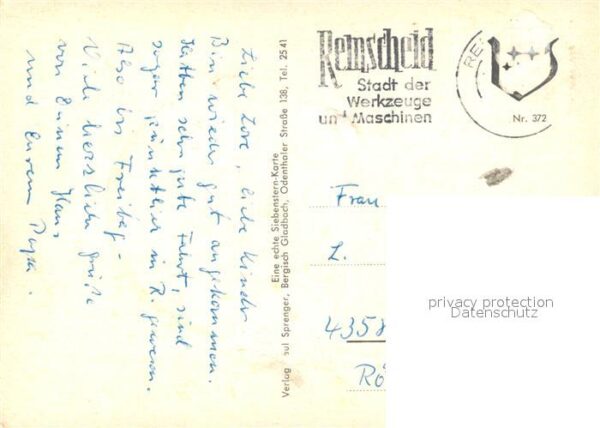 Liebe Lore, liebe Kinder
Bin wieder gut angekommen.
Hatten sehr gute Fahrt, sind
sogar pünktlich in R. gewesen.
Also bis Freitag –
Viele herzliche Grüße
von Eurem Hans
und Eurem Papa.
Eine echte Siebenstern-Karte
Verlag Paul Sprenger, Bergisch Gladbach, Odenthaler Straße 138, Tel. 2541
Remscheid
Stadt der
Werkzeuge
und Maschinen
RE
Nr. 372
Frau
L.
4358
Rö
privacy protection
Datenschutz